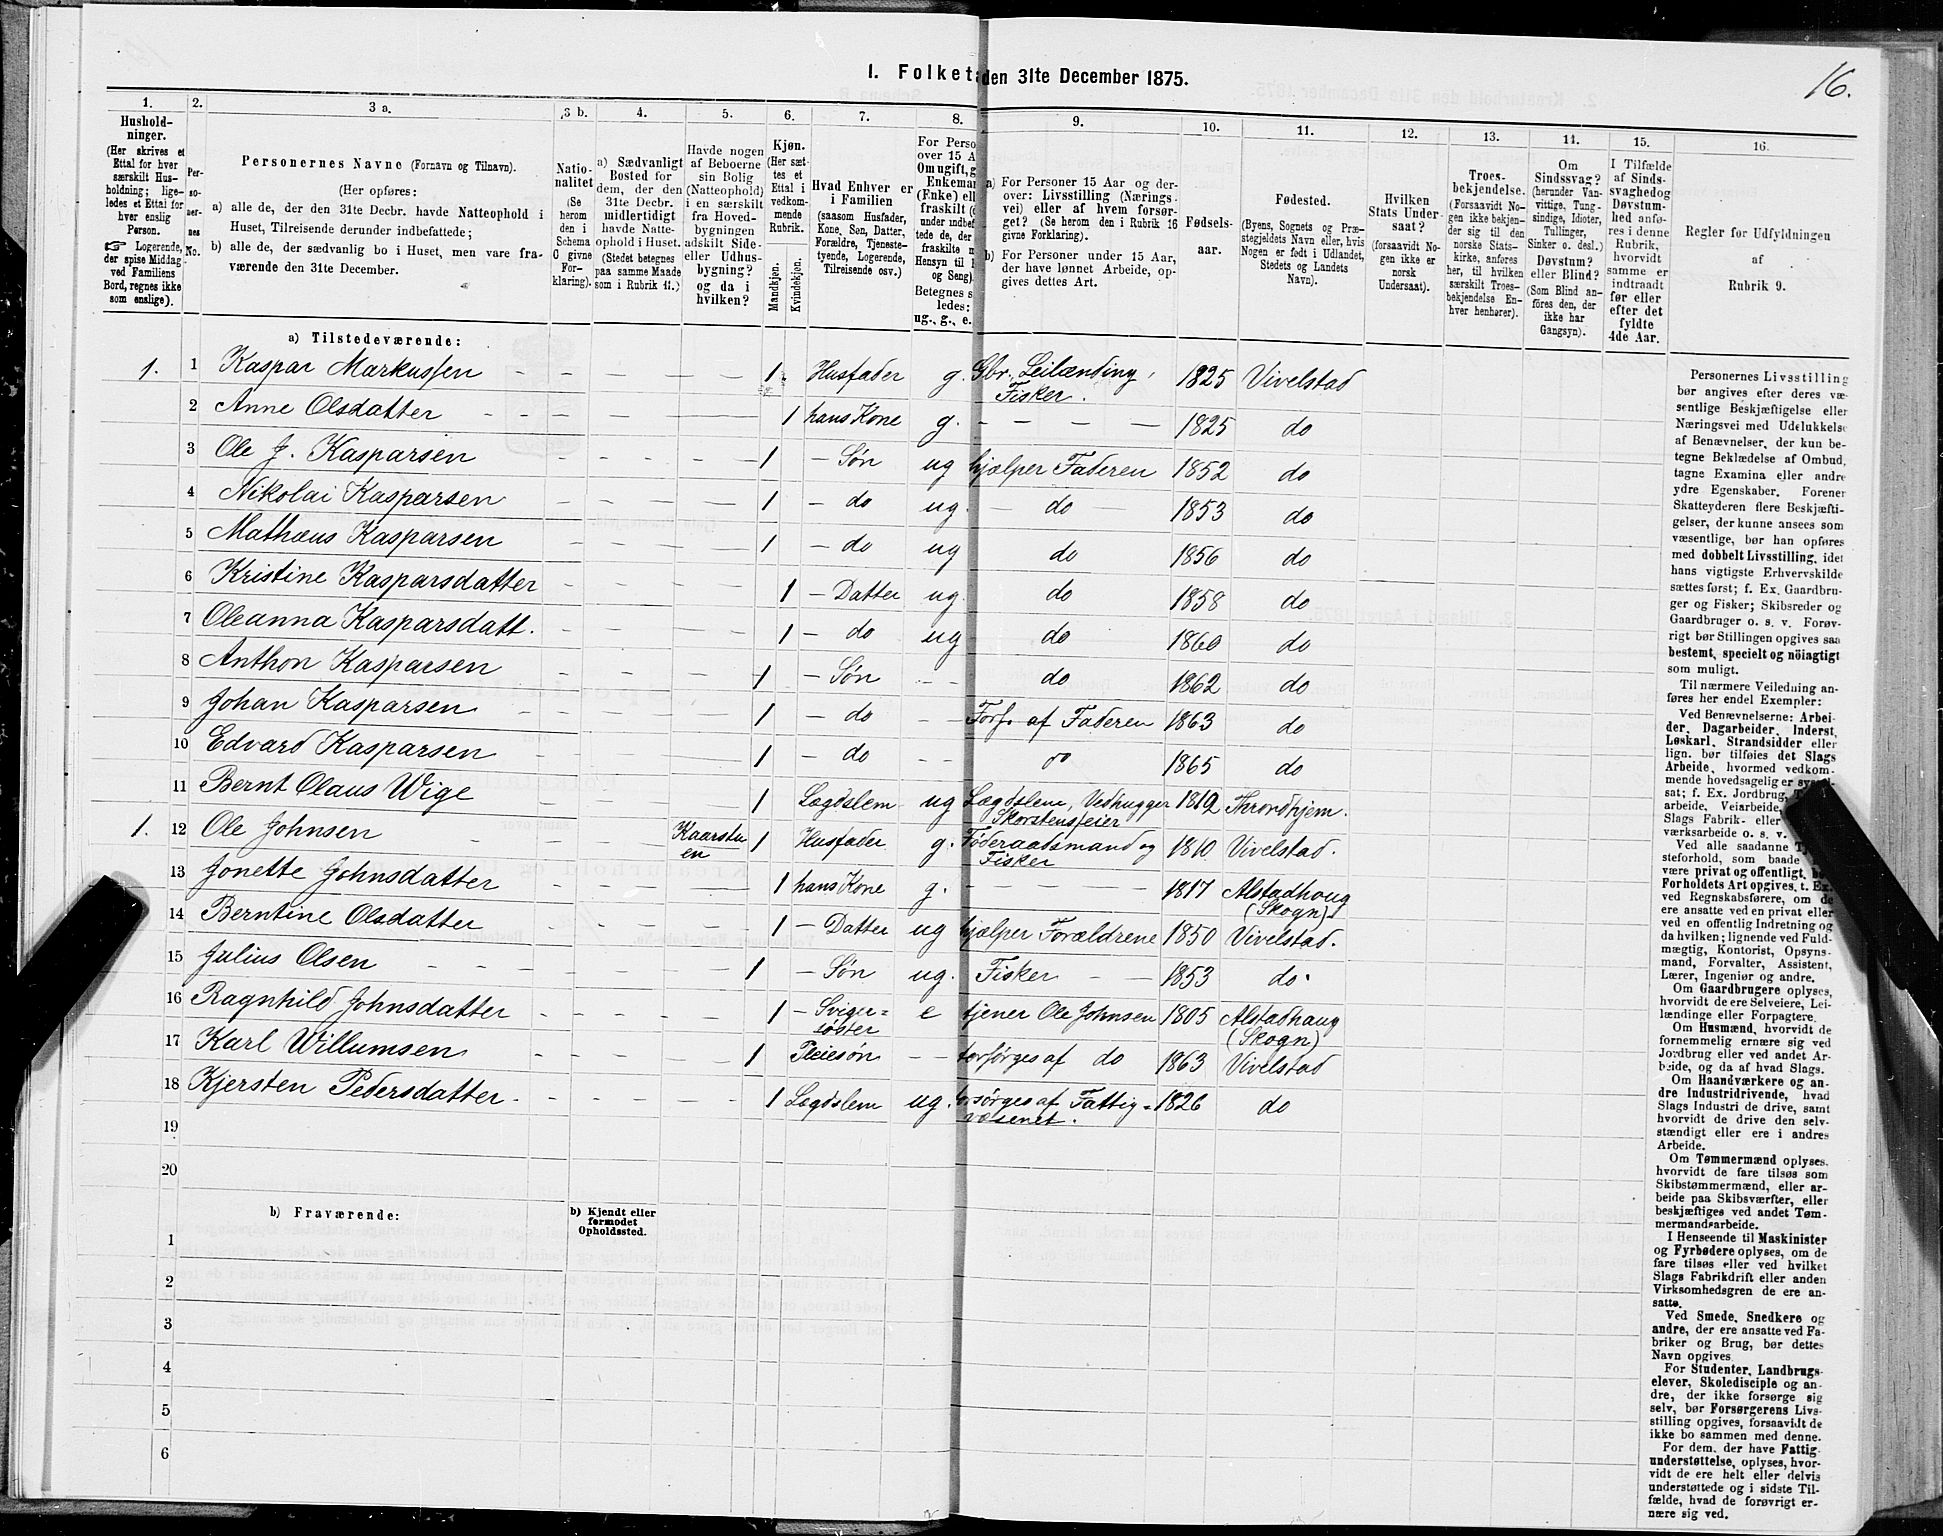 I. Folket den 31te December 1875.
16.
1.
Hushold-
ninger.
(Her skrives et
Ettal for hver
særskilt Hus-
holdning; lige-
ledes et Ettal for
hver enslig
Person.
Logerende,
der spise Middag
ved Familiens
Bord, regnes ikke
som enslige).
2.
Per-
so-
ner-
nes
No.
3 a.
Personernes Navne (Fornavn og Tilnavn).
(Her opføres:
a) alle de, der den 31te Decbr. havde Natteophold i
Huset, Tilreisende derunder indbefattede;
b) alle de, der sædvanlig bo i Huset, men vare fra-
værende den 31te December.
3 b.
Natio-
nalitet
(Se
herom
den i
Schema
C givne
For-
klaring).
4.
a) Sædvanligt
Bosted for
dem, der den
31te Decbr.
midlertidigt
havde Natte-
ophold i Huset.
(Stedet betegnes
paa samme Maade
som i Rubrik 11.)
5.
Havde nogen
af Beboerne
sin Bolig
(Natteophold)
i en særskilt
fra Hoved-
bygningen
adskilt Side-
eller Udhus-
bygning?
og da i
hvilken?
6.
Kjøn.
(Her sæt-
tes et
Ettal i
vedkom-
mende
Rubrik.
Mandkjøn.
Kvindekjøn.
7.
Hvad Enhver er
i Familien
(saasom Husfader,
Kone, Søn, Datter,
Forældre, Tjeneste-
tyende, Logerende,
Tilreisende osv.)
8.
For Perso
over 15 A
Om ugift, g
Enkeman
(Enke) ell
fraskilt (
under indbef
tede de, der
fraskilte m
Hensyn til
og Seng)
Betegnes s
ledes:
ug., g., e.
9.
a) For Personer 15 Aar og der-
over: Livsstilling (Nærings-
vei) eller af hvem forsør-
get? (Se herom den i Rubrik 16
givne Forklaring).
b) For Personer under 15 Aar,
der have lønnet Arbeide, op-
gives dettes Art.
10.
Fødsels-
aar.
11.
Fødested.
(Byens, Sognets og Præ-
stegjeldets Navn eller, hvis
Nogen er født i Udlandet,
Stedets og Landets
Navn).
12.
Hvilken
Stats Under-
saat?
(forsaavidt No-
gen ikke er
norsk
Undersaat).
13.
Troes-
bekjendelse.
(Forsaavidt No-
gen ikke bekjen-
der sig til den
norske Stats-
kirke, anføres
her, til hvilken
særskilt Troes-
bekjendelse En-
hver henhører).
14.
Om
Sindssvag?
(herunder Van-
vittige, Tung-
sindige, Idioter,
Tullinger,
Sinker o. desl.)
Døvstum?
eller Blind?
(Som Blind an-
føres den, der
ikke har
Gangsyn).
15.
I Tilfælde
af Sinds-
svaghed og
Døvstum-
hed anfø-
res i denne
Rubrik,
hvorvidt
samme er
indtraadt
før eller
efter det
fyldte
4de Aar.
16.
Regler for Udfyldningen
af
Rubrik 9.
a) Tilstedeværende:
1. 1 Kaspar Markussen - - - - - 1. Husfader g. Gbr. Leilænding, 1825 Vivelstad
Fisker.
2 Anne Olsdatter - - - - - 1 hans Kone g. - - - - 1825 do
3 Ole J. Kasparsen - - - - - 1 - Søn ug hjælper Faderen 1852 do
4 Nikolai Kasparsen - - - - - 1 - do ug. - do - 1853 do
5 Mathæus Kasparsen - - - - - 1 - do ug do 1856 do
6 Kristine Kasparsdatter - - - - - 1 - Datter ug. do 1858 do
7 Oleanna Kasparsdatt. - - - - - 1 - do ug do 1860 do
8 Anthon Kasparsen - - - - - 1 - Søn - - do 1862 do
9 Johan Kasparsen - - - - - 1 - do - - Fors. af Faderen 1863 do
10 Edvard Kasparsen - - - - - 1 - do - - do 1865 do
11 Bernt Olaus Wige - - - - - 1 Lægdslem ug Lægdslem, Vedhugger 1812 Throndhjem.
Skorstensfeier
1. 12 Ole Johnsen - - - Kaarstu 1 Husfader g. Føderaadsmand og 1810 Vivelstad.
en Fisker
13 Jonette Johnsdatter - - - - 1 hans Kone g. - - - - 1817 Alstadhoug
(Skogn)
14 Berntine Olsdatter - - - - - 1 - Datter ug hjælper Forældrene 1850 Vivelstad.
15 Julius Olsen - - - - - 1 - Søn ug. Fisker - - 1853 do.
16 Ragnhild Johnsdatter - - - - - 1 - Sviger= e tjener Ole Johnsen 1805 Alstadhaug
søster (Skogn)
17 Karl Willumsen - - - - - 1 Pleiesøn - - forsørges af do 1863 Vivelstad
18 Kjersten Pedersdatter - - - - - 1 Lægdslem ug. forsørges af Fattig= 1826 do
væsenet.
19
20
b) Fraværende:
b) Kjendt eller
formodet
Opholdssted.
1
2
3
4
5
6
Personernes Livsstilling
bør angives efter deres væ-
sentlige Beskjæftigelse eller
Næringsvei med Udelukkelse
af Benævnelser, der kun be-
tegne Beklædelse af Ombud,
tagne Examina eller andre
ydre Egenskaber. Forener
Skatteyderen flere Beskjæfti-
gelser, der kunne ansees som
væsentlige, bør han opføres
med dobbelt Livsstilling, idet
hans vigtigste Erhvervskilde
sættes først; f. Ex. Gaardbru-
ger og Fisker; Skibsreder og
Gaardbruger o. s. v. Forøv-
rigt bør Stillingen opgives saa
bestemt, specielt og nöiagtigt
som muligt.
Til nærmere Veiledning an-
føres her endel Exempler:
Ved Benævnelserne: Arbei-
der, Dagarbeider, Inderst,
Løskarl, Strandsidder eller
lign. bør tilføies det Slags
Arbeide, hvormed vedkom-
mende hovedsagelig er syssel
sat; f. Ex. Jordbrug,
arbeide, Veiarbeide,
Slags Fabrik- eller
værksarbeide o. s. v.
Ved alle saadanne
steforhold, som baade
være privat og offentligt,
Forholdets Art opgives, t. Ex.
ved Regnskabsførere, om de
ere ansatte ved en privat eller
ved en offentlig Indretning og
da hvilken; lignende ved Fuld-
mægtig, Kontorist, Opsyns-
mand, Forvalter, Assistent,
Lærer, Ingeniør og andre.
Om Gaardbrugere oplyses,
hvorvidt de ere Selveiere, Lei-
lændinge eller Forpagtere.
Om Husmænd, hvorvidt de
fornemmelig ernære sig ved
Jordbrug eller ved andet Ar-
beide, og da af hvad Slags.
Om Haandværkere og an-
dre Industridrivende, hvad
Slags Industri de drive, samt
hvorvidt de drive den selv-
stændigt eller ere i andres
Arbeide.
Om Tømmermænd oplyses,
hvorvidt de fare tilsøs som
Skibstømmermænd, eller ar-
beide paa Skibsværfter, eller
beskjæftiges ved andet Tøm-
mermandsarbeide.
I Henseende til Maskinister
og Fyrbødere oplyses, om de
fare tilsøs eller ved hvilket
Slags Fabrikdrift eller anden
Virksomhedsgren de ere an-
satte.
Ved Smede, Snedkere og
andre, der ere ansatte ved Fa-
briker og Brug, bør dettes
Navn opgives.
For Studenter, Landbrugs-
elever, Skoledisciple og an-
dre, der ikke forsørge sig
selv, bør Forsørgerens Livs-
stilling opgives, forsaavidt de
ikke bo sammen med denne.
For dem, der have Fattig-
understøttelse, oplyses, hvor-
vidt de ere helt eller delvis
understøttede og i sidste Til-
fælde, hvad de forøvrigt er-
nære sig ved.